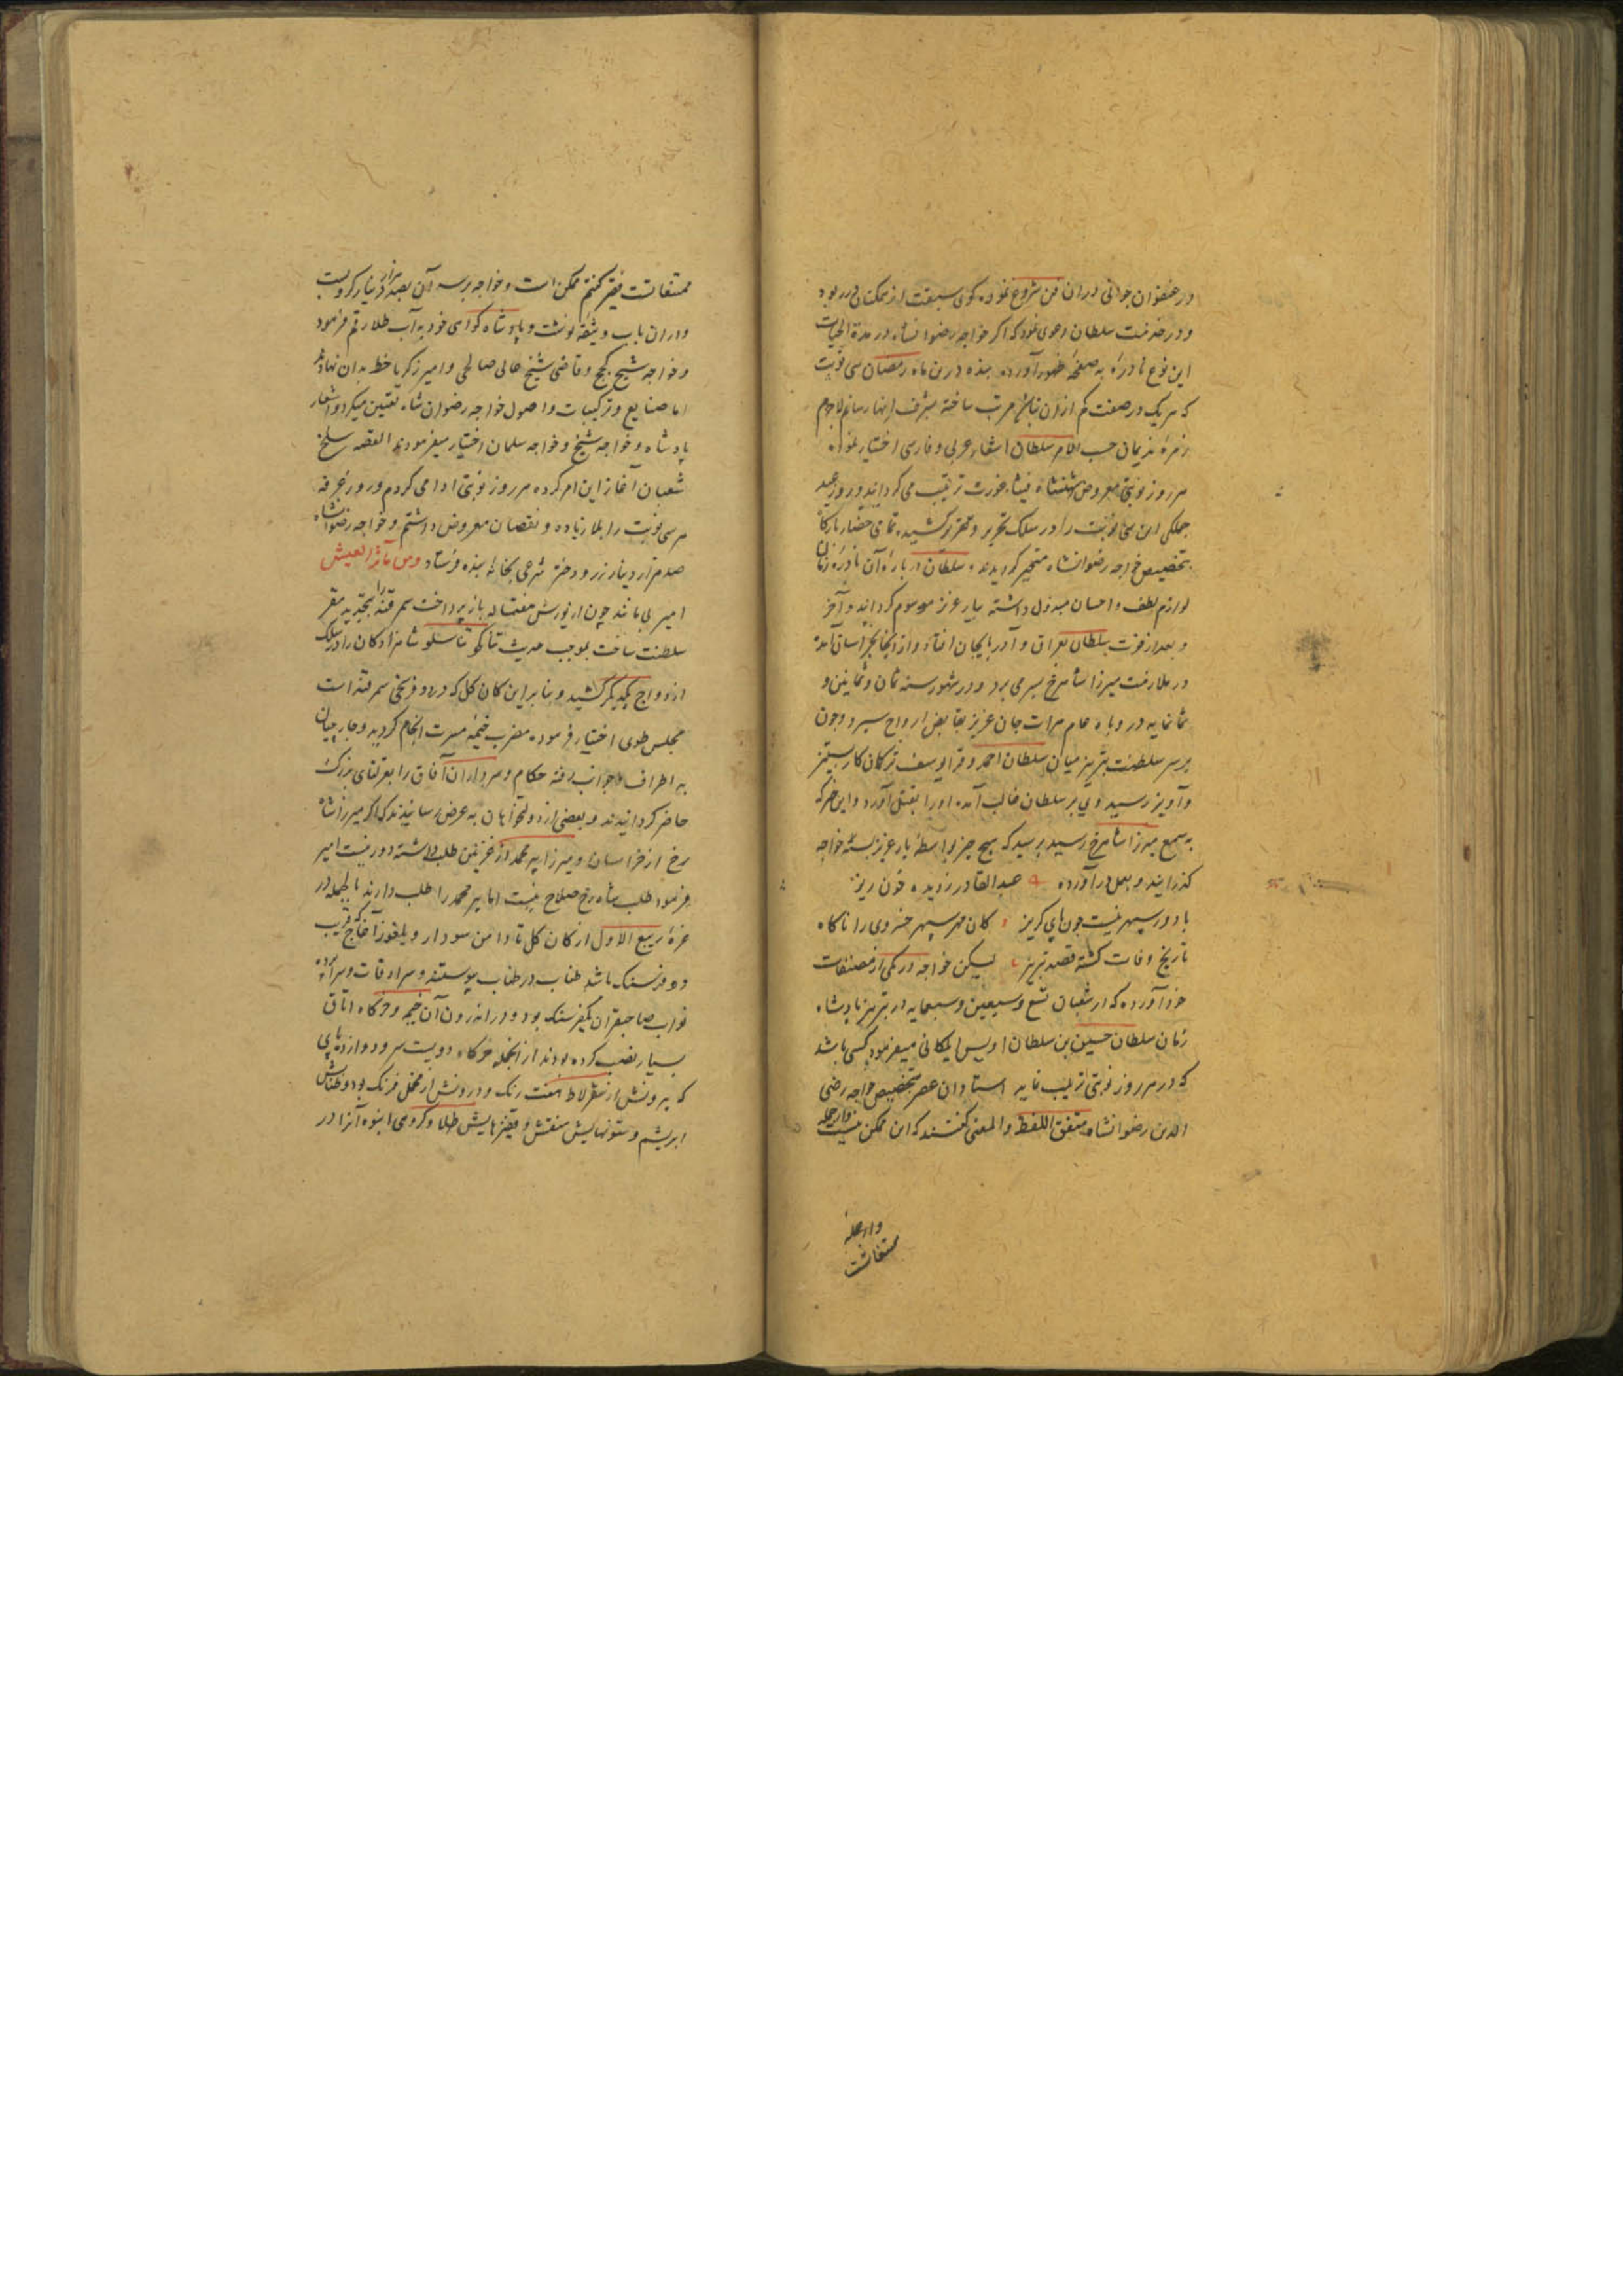 در عنفوان جوانی در آن فن شروع نموده گوی سبقت از همکنان در ربود
و در خدمت سلطان دعوی نمود که اگر خواجه رضوانشاه در مدة الحیات
این نوع نادرهٔ به صفحهٔ ظهور آورده بنده درین ماه رمضان سی نوبت
که هر یک در صنعت کم از آن نباشد مرتب ساخته بشرف انها رسانم لاجرم
زمرهٔ ندیمان حسب الامر سلطان اشعار عربی و فارسی اختیار نموده
هر روز نوبتی معروض شهنشاه ترتیب می کردانید و روز عید
جملکی این سی نوبت را در سلک تحریر و تقریر کشیده تمامی حضار بارگاه
بتخصیص خواجه رضوانشاه متحیر کردیدند و سلطان دربارهٔ آن نادرهٔ زمان
لوازم لطف و احسان مبذول داشته بیار عزیز موسوم کردانید و آخر
و بعد از فوت سلطان بعراق و آذربایجان افتاد و از آنجا بخراسان آمده
در ملازمت میرزا شاهرخ بسر می برد و در شهور سنه ثمان و ثمانین و
ثمانمایه در وباء عام هرات جان عزیز بقابض ارواح سپرد و چون
بر سر سلطنت تبریز میان سلطان احمد و قرا یوسف ترکمان کار بستیز
و آویز رسید وی بر سلطان غالب آمده او را بقتل آورد و این خبر که
به سمع میرزا شاهرخ رسید پرسید که هیچ چیز بواسطهٔ یار عزیز بستهٔ خواجه
گذرانید و بعمل درآورده عبدالقادر ز دیده خون ریز
با دور سپهر نیست چون پای گریز کان مهر سپهر خسروی را ناگاه
تاریخ وفات گشته قصد تبریز لیکن خواجه در یکی از مصنفات
خود آورده که در شعبان تسع و سبعین و سبعمایه در تبریز پادشاه
زمان سلطان حسین بن سلطان اویس ایلکانی میفرمود کسی باشد
که در هر روز نوبتی ترتیب نماید استادان عصر بتخصیص خواجه رضی
الدین رضوانشاه متفق اللفظ و المعنی گفتند که این ممکن نیست و از جمله
و از جمله
ممتنعاتست
ممتنعاتست فقیر گفتم ممکن است و خواجه بر سر آن بصد هزار دینار گرو بست
و در آن باب وثیقه نوشت و پادشاه گواهی خود به آب طلا رقم فرمود
و خواجه شیخ کجج و قاضی شیخ علی صالحی و امیر زکریا خط بدان نهادند
اما صنایع و ترکیبات و اصول خواجه رضوان شاه تعیین میکرد و اشعار
پادشاه و خواجه شیخ و خواجه سلمان اختیار میفرمودند القصه سلخ
شعبان آغاز این امر کرده هر روز نوبتی ادا می کردم و روز عرفه
هر سی نوبت را بلا زیاده و نقصان معروض داشتم و خواجه رضوانشاه
صد هزار دینار زر و دختر شرعی بخانهٔ بنده فرستاد و من مآثر العیش
امیر بی مانند چون از یورش هفتساله باز پرداخت سمرقند را بتجدید مقر
سلطنت ساخت بموجب حدیث تناکحوا تناسلوا شاهزادگان را در سلک
ازدواج یکدیگر کشید و بنابراین کان گل که در دو فرسخی سمرقند است
مجلس طوی اختیار فرموده مضرب خیمه مسرت انجام کردید و جارچیان
به اطراف و جوانب رفته حکام و سرداران آفاق را بقرلتای بزرگ
حاضر کردانیدند و بعضی از دولتخواهان به عرض رسانیدند که اگر میرزا شاه
رخ از خراسان و میرزا پیر محمد از غزنین طلب داشته دور نیست امیر
فرمود طلب شاه رخ صلاح نیست اما پیر محمد را طلب دارند بالجمله در
غره ربیع الاول از کان گل تا دامن سودار و یلغوز آغاج که قریب
دو فرسنک باشد طناب در طناب پیوسته و سرادقات و سراپرده
نواب صاحبقران یکفرسنک بود و در اندرون آن خیمه و خرگاه اتاق
بسیار نصب کرده بودند از آنجمله خرگاه دویست سر و دوازده پایی
که بیرونش از سقرلاط هفت رنک و درونش از مخمل فرنک بود و طنابش
ابریشم و ستونهایش منقش و قیقزهایش طلا و کروهی انبوه آنرا در